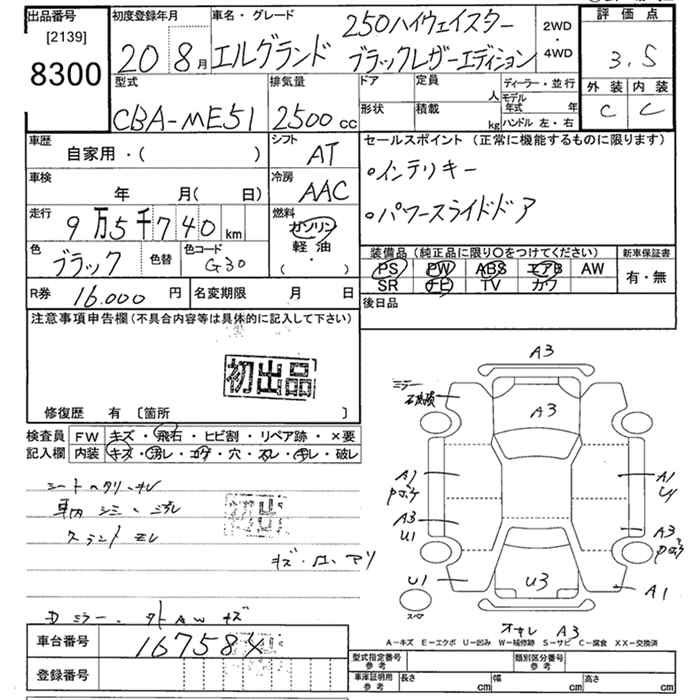 出品番号
[2139]
8300
初度登録年月
20 8月
車名・グレード
エルグランド 250ハイウェイスター
ブラックレザーエディション
2WD
・
4WD
評価点
3.5
外装 内装
C C
型式
CBA-ME51
排気量
2500cc
ドア
形状
定員
人
積載
kg
ディーラー・並行
モデル年式 年
ハンドル 左・右
車歴
自家用・( )
シフト
AT
車検
年 月( 日)
冷房
AAC
走行
9万5千740km
燃料
ガソリン
軽油
( ・ )
色
ブラック
色替
色コード
G30
R券
16.000円
名変期限 月 日
セールスポイント (正常に機能するものに限ります)
。インテリキー
。パワースライドドア
装備品 (純正品に限り〇をつけてください)
PS PW ABS エアB AW
SR ナビ TV カワ
新車保証書
有・無
後日品
注意事項申告欄(不具合内容等は具体的に記入して下さい)
初出品
修復歴 有 [箇所 ]
検査員
記入欄
FW キズ・飛石・ヒビ割・リペア跡・×要
内装 キズ・汚れ・コゲ・穴・スレ・キレ・破レ
初出
ミラー
A3
A3
A1
A3
U1
U1
A1
A3
A1
U3
スペア
A3
A-キズ E-エクボ U-凹み W-補修跡 S-サビ C-腐食 XX-交換済
車台番号
登録番号
型式指定番号
参考
類別区分番号
参考
車庫証明用
参考
長さ cm
幅 cm
高さ cm